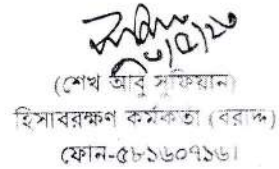 ৮/৫/২৩
(শেখ আবু সুফিয়ান)
হিসাবরক্ষণ কর্মকর্তা (বরাদ্দ)
ফোন-৫৮১৬০৭১৬।